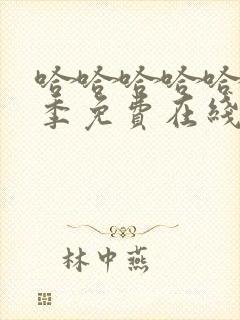 哈哈哈哈哈
季免费在线
林中燕